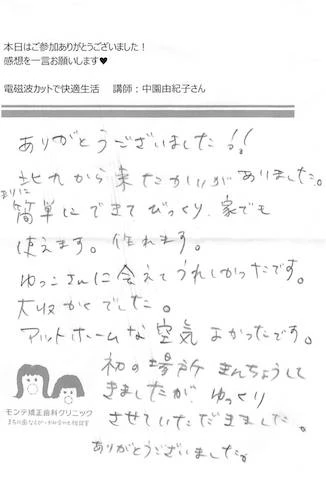 本日はご参加ありがとうございました！
感想を一言お願いします♥
電磁波カットで快適生活　講師：中園由紀子さん
ありがとうございました!!
北九から来たかいがありました。
あまりに
簡単にできてびっくり、家でも
使えます。作れます。
ゆっこさんに会えてうれしかったです。
大収かくでした。
アットホームな空気よかったです。
初の場所きんちょうして
きましたがゆっくり
させていただきました。
ありがとうございました。
モンテ矯正歯科クリニック